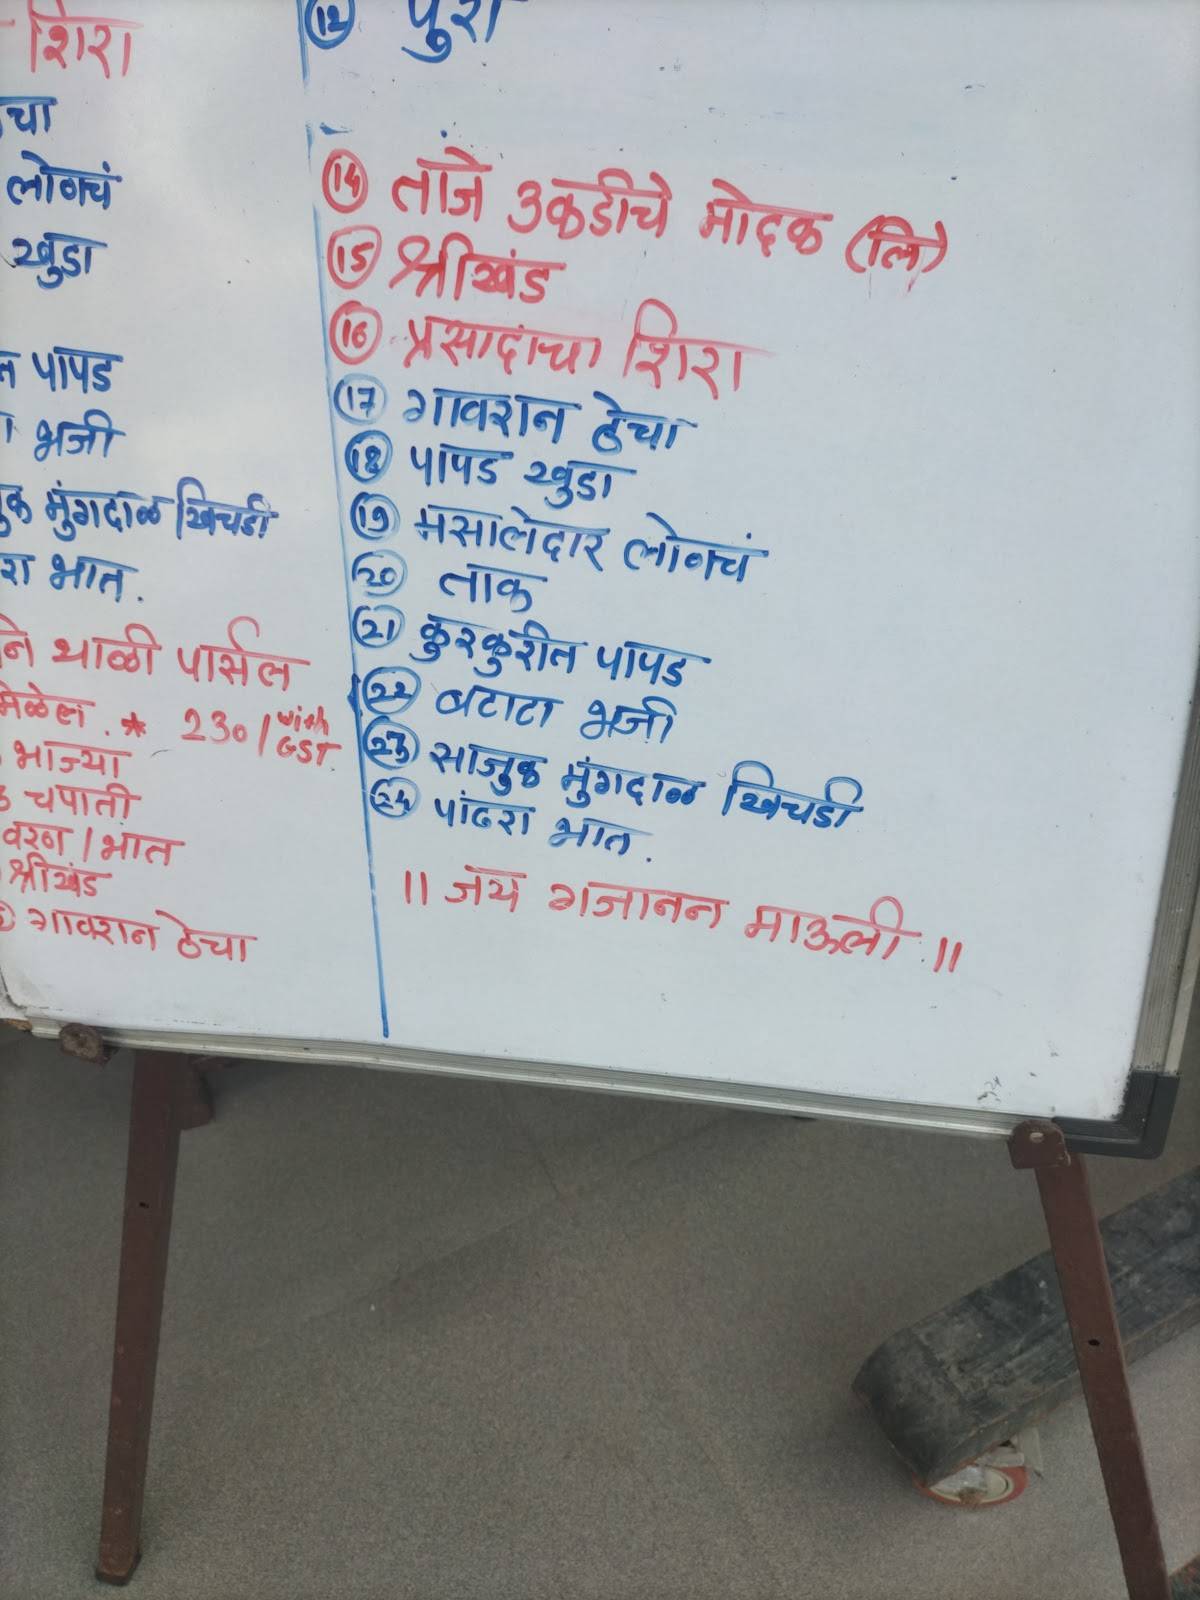 शिरा
चा
लोणचं
खुडा
पापड
भजी
मुंगदाळ खिचडी
रा भात.
नि थाळी पार्सल
मिळेल. * 230/ with GST
भाज्या
चपाती
वरण / भात
श्रीखंड
गावरान ठेचा
12 पुरी
14 ताजे उकडीचे मोदक (लि)
15 श्रीखंड
16 प्रसादाचा शिरा
17 गावरान ठेचा
18 पापड खुडा
19 मसालेदार लोणचं
20 ताक
21 कुरकुरीत पापड
22 बटाटा भजी
23 साजुक मुंगदाळ खिचडी
24 पांढरा भात.
॥ जय गजानन माऊली ॥